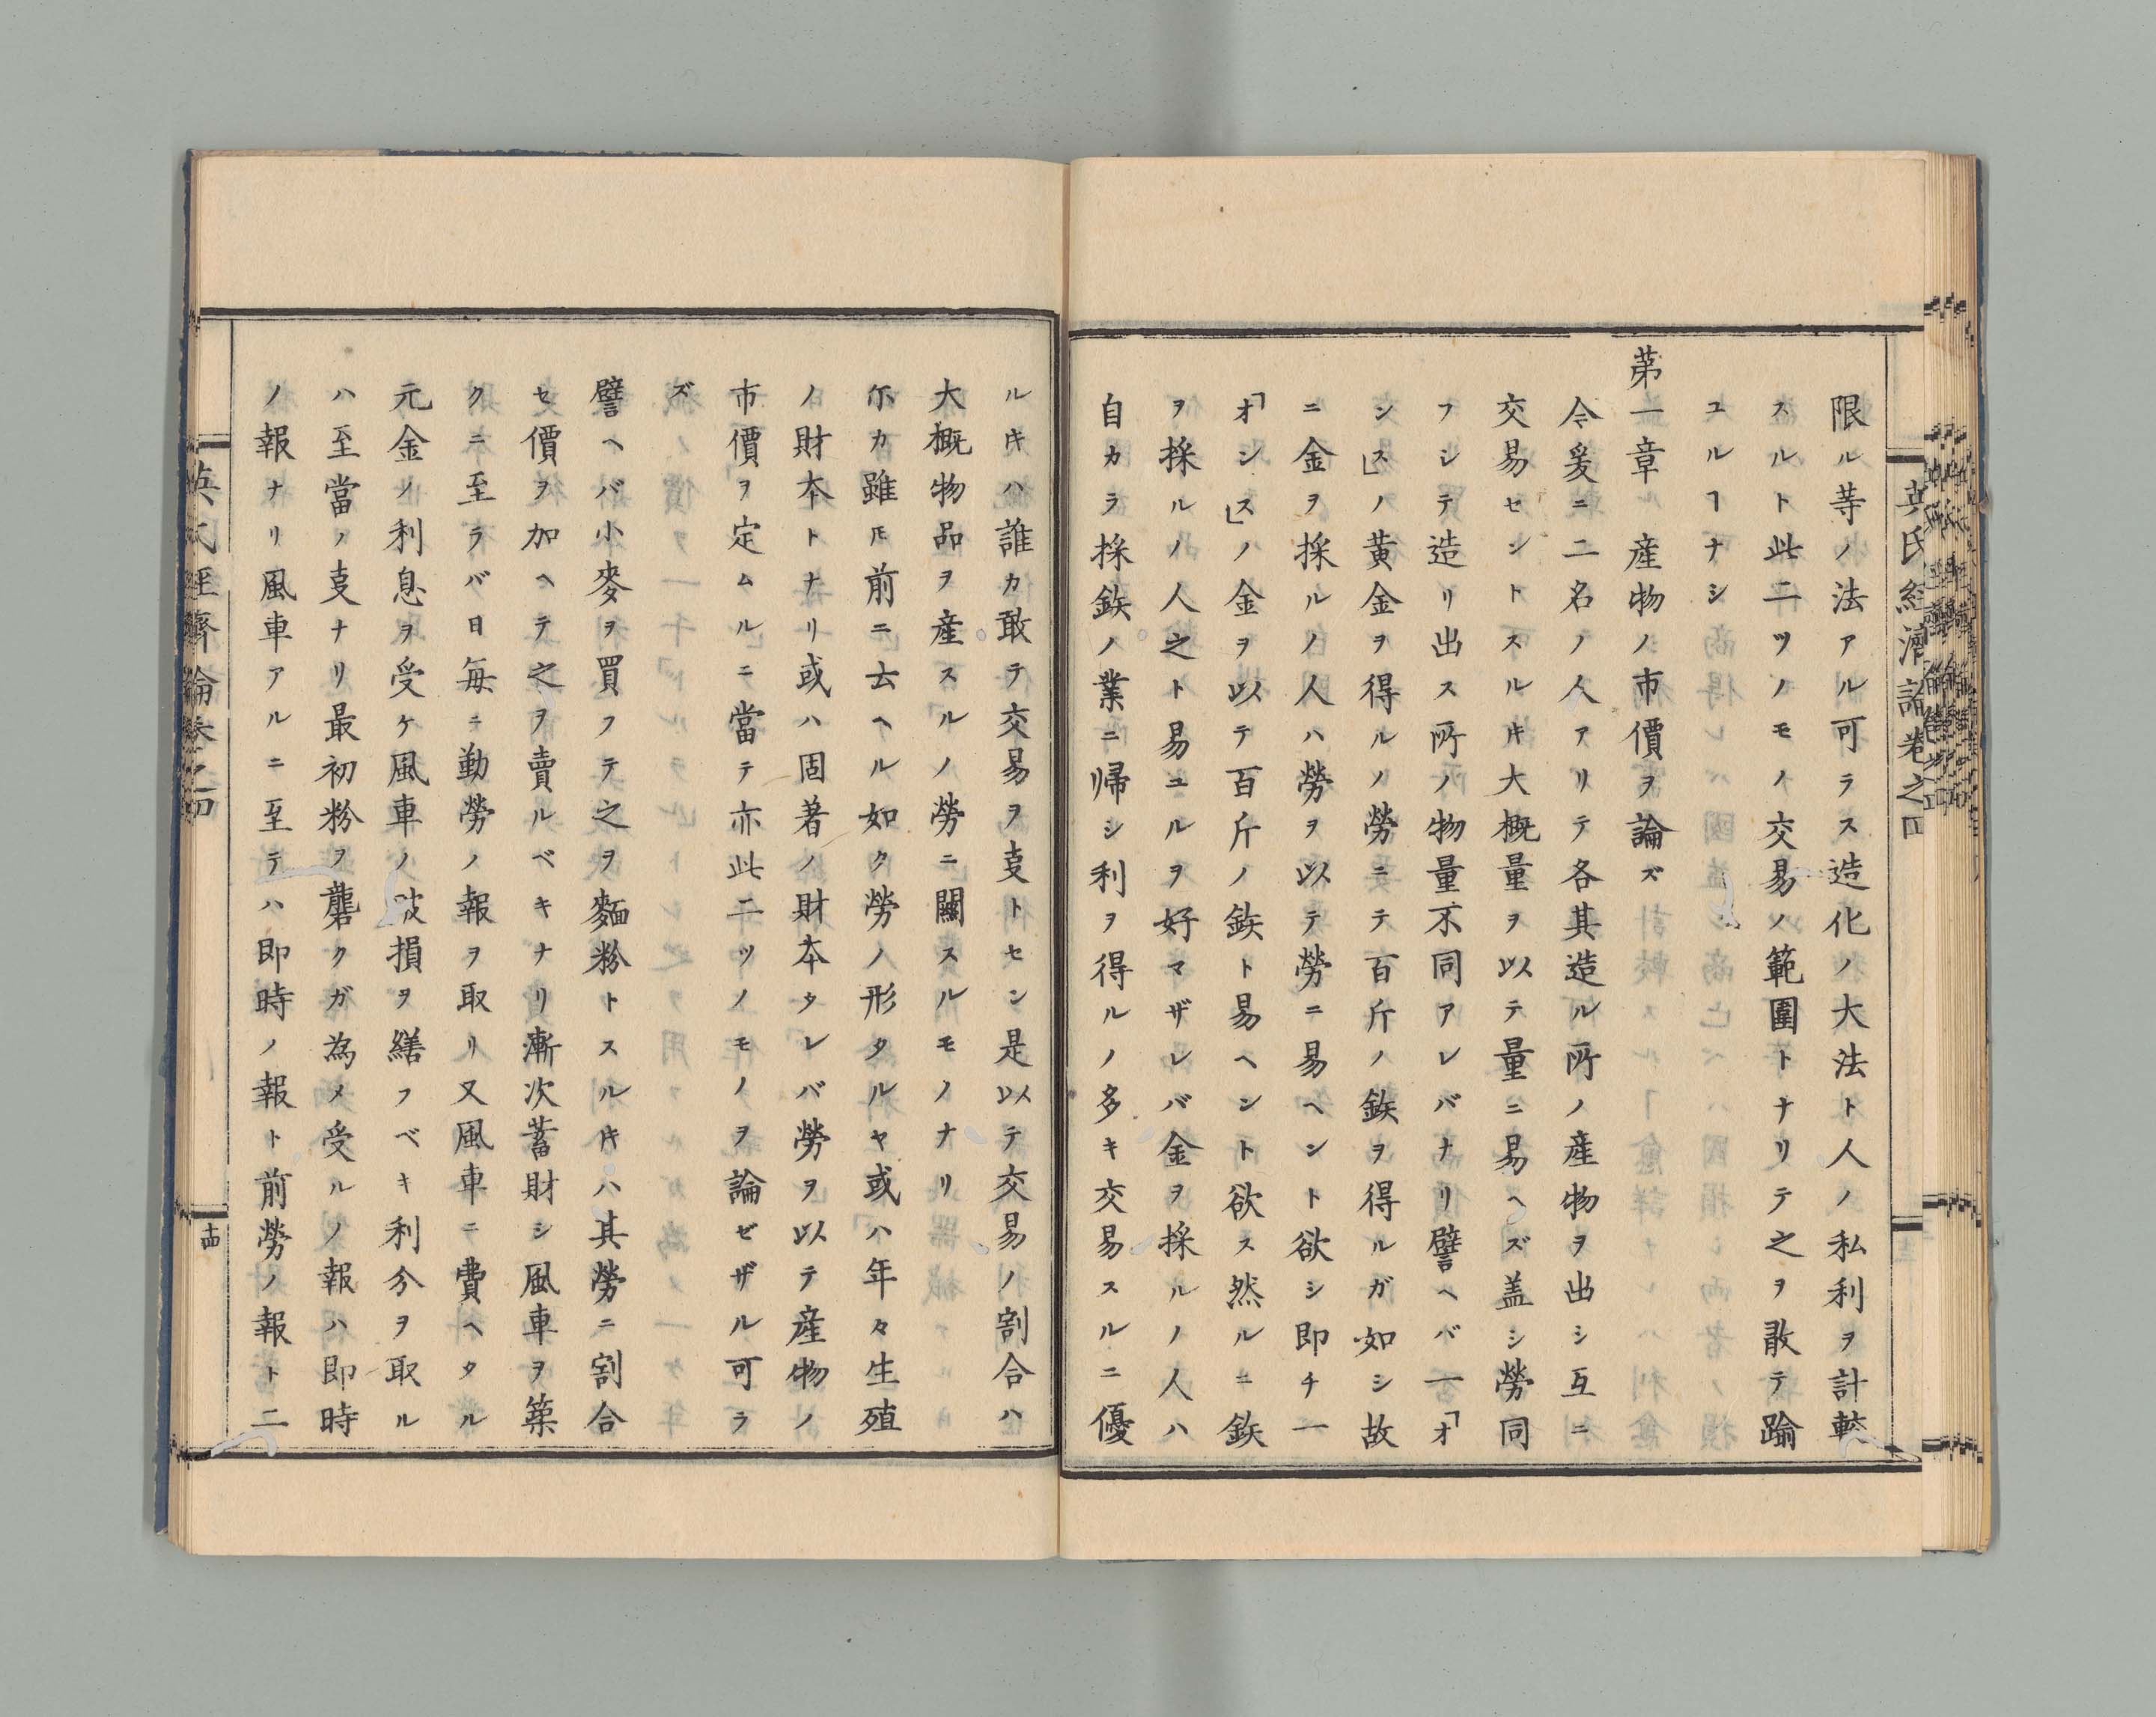 限ル等ノ法アル可ラス造化ノ大法ト人ノ私利ヲ計較
スルト此二ツノモノ交易ノ範圍トナリテ之ヲ敢テ踰
ユルヿナシ
苐一章 産物ノ市價ヲ論ズ
今爰ニ二名ノ人アリテ各其造ル所ノ産物ヲ出シ互ニ
交易セントスルキ大概量ヲ以テ量ニ易ヘズ盖シ勞同
フシテ造リ出ス所ノ物量不同アレバナリ譬ヘバ一「オ
ンス」ノ黄金ヲ得ルノ勞ニテ百斤ノ鉄ヲ得ルガ如シ故
ニ金ヲ採ルノ人ハ勞ヲ以テ勞ニ易ヘント欲シ即チ一
「オンス」ノ金ヲ以テ百斤ノ鉄ト易ヘント欲ス然ルニ鉄
ヲ採ルノ人之ト易ユルヲ好マザレバ金ヲ採ルノ人ハ
自カラ採鉄ノ業ニ帰シ利ヲ得ルノ多キ交易スルニ優
ルキハ誰カ敢テ交易ヲ㕝トセン是以テ交易ノ割合ハ
大概物品ヲ産スルノ勞ニ關スルモノナリ
尓カ雖𪜈前ニ云ヘル如ク勞ノ形タルヤ或ハ年々生殖
ノ財本トナリ或ハ固著ノ財本タレバ勞ヲ以テ産物ノ
市價ヲ定ムルニ當テ亦此二ツノモノヲ論ゼザル可ラ
ズ
譬ヘバ小麥ヲ買フテ之ヲ麵粉トスルキハ其勞ニ割合
セ價ヲ加ヘテ之ヲ賣ルベキナリ漸次蓄財シ風車ヲ築
クニ至ラバ日毎ニ動勞ノ報ヲ取リ又風車ニ費ヘタル
元金ノ利息ヲ受ケ風車ノ破損ヲ繕フベキ利分ヲ取ル
ハ至當ノ㕝ナリ最初粉ヲ礱クガ為メ受ルノ報ハ即時
ノ報ナリ風車アルニ至テハ即時ノ報ト前勞ノ報ト二
英氏經濟論卷之四
英氏經濟論卷之四
十四